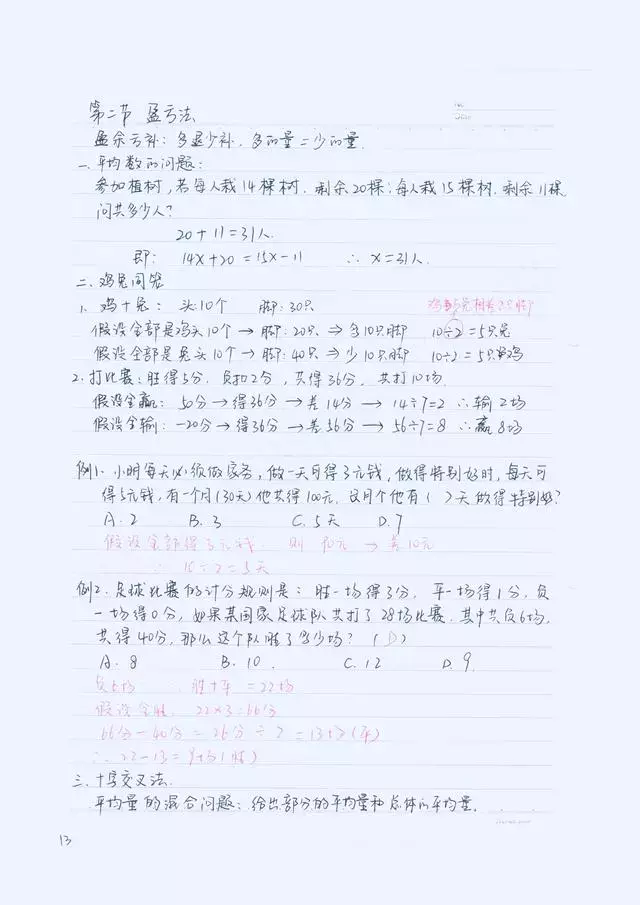 第二节 盈亏法
盈余亏补：多退少补，多的量=少的量.
一.平均数的问题：
参加植树，若每人栽14棵树，剩余20棵；每人栽15棵树，剩余11棵
问共多少人？
20+11=31人.
即： 14x+20=15x-11 ∴x=31人.
二.鸡兔同笼
1. 鸡+兔： 头:10个 脚:30只 鸡与兔相差2只脚
假设全部是鸡头10个→脚:20只→多10只脚 10÷2=5只兔
假设全部是兔头10个→脚:40只→少10只脚 10÷2=5只鸡
2.打比赛：胜得5分，负扣2分，共得36分，共打10场.
假设全赢： 50分→得36分→差14分→14÷7=2 ∴输2场
假设全输： -20分→得36分→差56分→56÷7=8 ∴赢8场
例1.小明每天必须做家务，做一天可得3元钱，做得特别好时，每天可
得5元钱，有一个月(30天)他共得100元，这月个他有( )天做得特别好?
A.2 B.3 C.5天 D.7
假设全部得3元钱 则 90元→差10元
∴ 10÷2=5天
例2.足球比赛的计分规则是：胜一场得3分，平一场得1分，负
一场得0分，如果某国家足球队共打了28场比赛，其中共负6场，
共得40分，那么这个队胜了多少场？ (D)
A.8 B.10. C.12 D.9.
负6场 胜+平=22场
假设全胜. 22×3=66分
66分-40分=26分÷2=13场(平)
∴22-13=9场(胜)
三.十字交叉法.
平均量的混合问题：给出部分的平均量和总体的平均量.
13